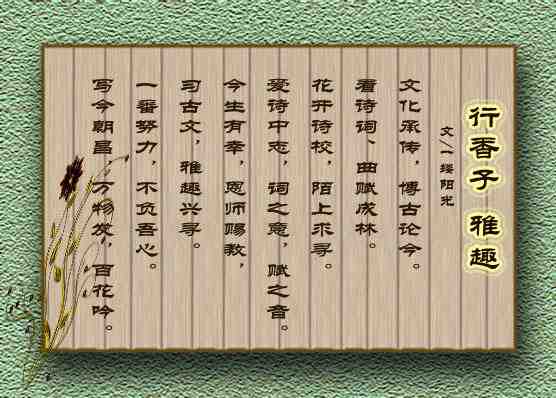 行香子 雅趣
文\一缕阳光
文化承传，博古论今。
看诗词、曲赋成林。
花开诗校，陌上求寻。
爱诗中志，词之意，赋之音。
今生有幸，恩师赐教，
习古文，雅趣兴寻。
一番努力，不负吾心。
写今朝昌，万物发，百花吟。